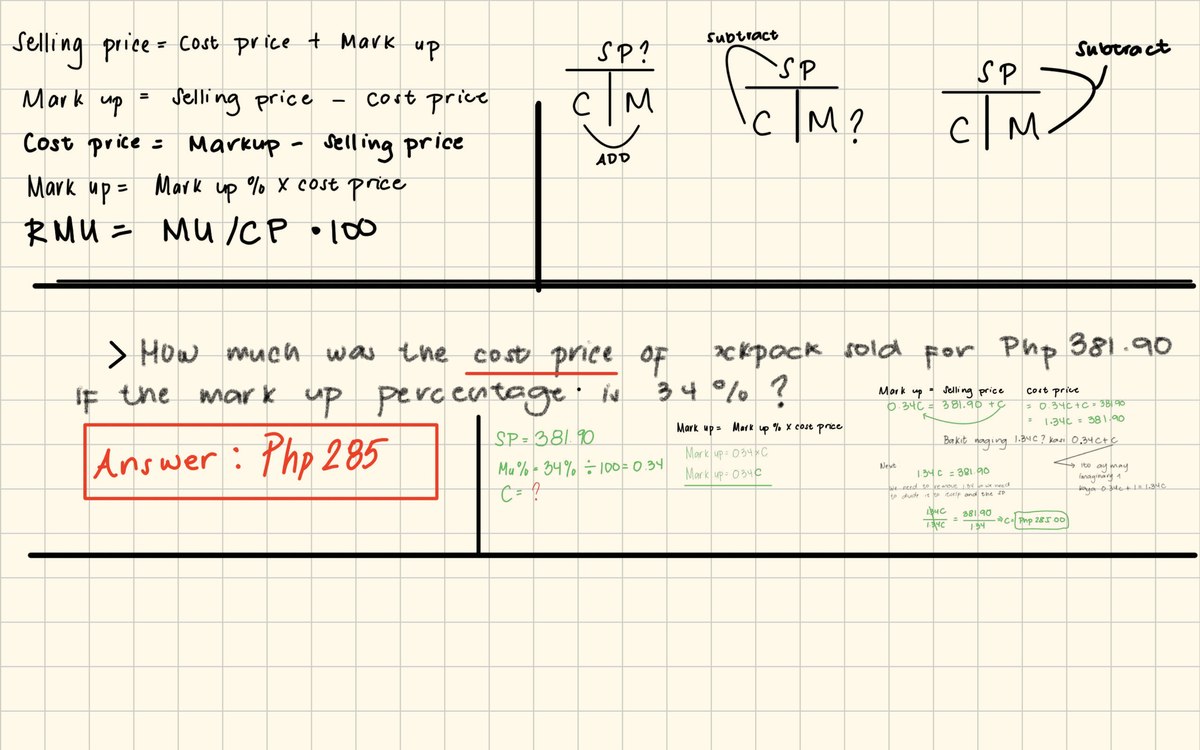 Selling price = Cost price + Mark up
Mark up = Selling price - cost price
Cost price = Markup - Selling price
Mark up = Mark up % x cost price
RMU = MU/CP • 100
SP?
C M
ADD
subtract
SP
C M ?
subtract
SP
C M
> How much was the cost price of ckpack sold for Php 381.90
IF the mark up percentage is 34% ?
Answer : Php 285
SP = 381.90
Mu% = 34% ÷ 100 = 0.34
C = ?
Mark up = Mark up % x cost price
Mark up = 0.34 x C
Mark up = 0.34C
Mark up = Selling price cost price
0.34C = 381.90 + C = 0.34C + C = 381.90
= 1.34C = 381.90
Bakit naging 1.34C ? kasi 0.34C + C
Ito ay may
imaginary 1
kaya 0.34C + 1 = 1.34C
Next
1.34C = 381.90
We need to remove 1.34 so we need
to divide it to itself and the SP
1.34C / 1.34C = 381.90 / 1.34 = C = Php 285.00